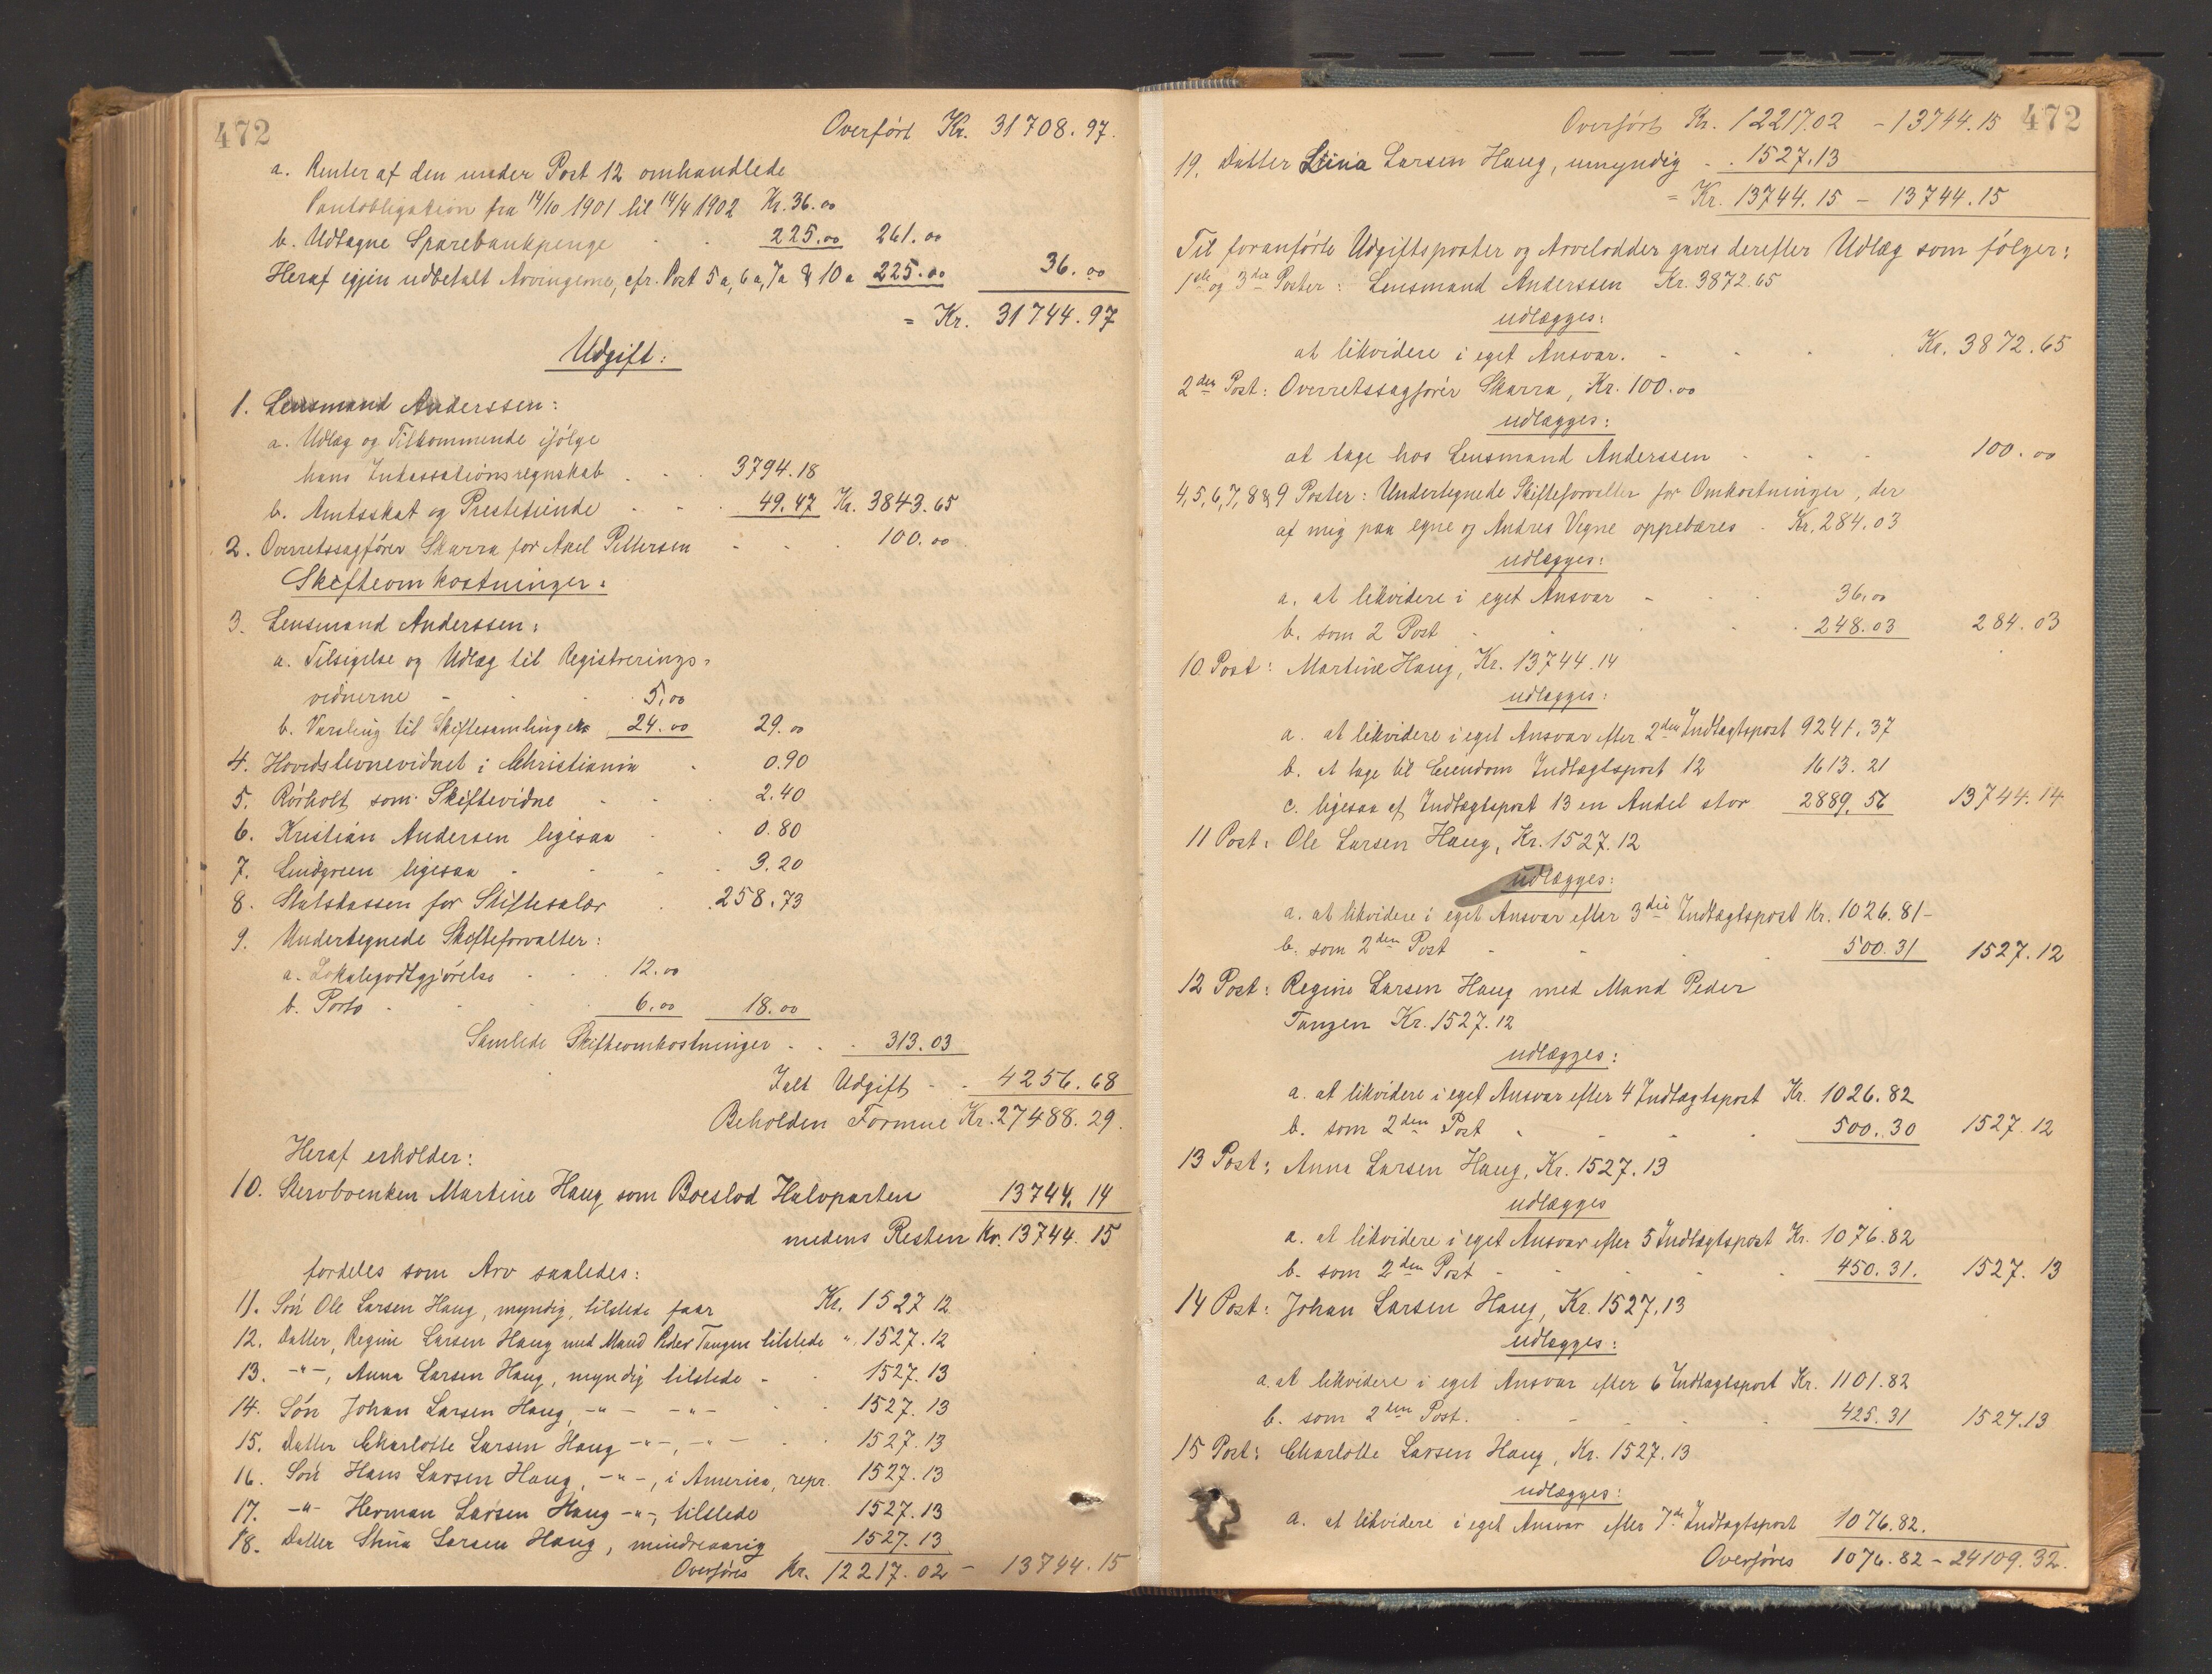 472
Overført Kr. 31708.97.
a. Renter af den under Post 12 omhandlede
Pantobligation fra 14/10 1901 til 14/4 1902 Kr. 36.00
b. Udtagne Sparebankpenge 225.00 261.00
Heraf igjen udbetalt Arvingerne, cfr. Post 5 a, 6 a, 7a & 10 a 225.00 36.00
= Kr. 31744.97
Udgift:
1. Lensmand Anderssen:
a. Udlæg og Tilkommende ifølge
hans Inkassationsregnskab 3794.18
b. Amtsskat og Prestetiende 49.47 Kr. 3843.65
2. Overretssagfører Skarra for Axel Pettersen 100.00
Skifteomkostninger:
3. Lensmand Anderssen:
a. Tilsigelse og Udlæg til Registrerings-
vidnerne 5,00
b. Varsling til Skiftesamlingen 24.00 29.00
4. Hovedstevnevidnet i Christiania 0.90
5. Rørholt som Skiftevidne 2.40
6. Kristian Andersen ligesaa 0.80
7. Lindgreen ligesaa 3.20
8. Statskassen for Skiftesalær 258.73
9. Undertegnede Skifteforvalter:
a. Lokalegodtgjørelse 12.00
b. Porto 6.00 18.00
Samlede Skifteomkostninger 313.03
Ialt Udgift 4256.68
Beholden Formue Kr. 27488.29.
Heraf erholder:
10. Stervboenken Martine Haug som Boeslod Halvparten 13744.14
medens Resten Kr. 13744.15
fordeles som Arv saaledes:
11. Søn Ole Larsen Haug, myndig, tilstede faar Kr. 1527.12
12. Datter, Regine Larsen Haug med Mand Peder Tangen tilstede " 1527.12
13. -"-, Anna Larsen Haug, myndig tilstede - 1527.13
14. Søn Johan Larsen Haug, -"- -"- 1527.13
15. Datter Charlotte Larsen Haug -"-, -"- 1527.13
16. Søn Hans Larsen Haug, -"-, i America, repr. 1527.13
17. -"- Herman Larsen Haug -"-, tilstede 1527.13
18. Datter Stina Larsen Haug, mindreaarig 1527.13
Overføres Kr. 12217.02 - 13744.15
Overført Kr. 12217.02 - 13744.15 472
19. Datter Lina Larsen Haug, umyndig 1527.13
= Kr. 13744.15 - 13744.15
Til foranførte Udgiftsposter og Arvelodder gives derefter Udlæg som følger:
1ste og 3die Poster: Lensmand Anderssen Kr. 3872.65
udlægges:
at likvidere i eget Ansvar. Kr. 3872.65
2den Post: Overretssagfører Skarra, Kr. 100.00
udlægges:
at tage hos Lensmand Anderssen 100.00
4, 5, 6, 7, 8 & 9 Poster: Undertegnede Skifteforvalter for Omkostninger, der
af mig paa egne og Andres Vegne oppebæres Kr. 284.03
udlægges:
a. at likvidere i eget Ansvar 36.00
b. som 2 Post 248.03 284.03
10 Post: Martine Haug, Kr. 13744.14
udlægges:
a. at likvidere i eget Ansvar efter 2den Indtægtspost 9241.37
b. at tage til Eiendom Indtægtspost 12 1613.21
c. ligesaa af Indtægtspost 13 en Andel stor 2889.56 13744.14
11 Post: Ole Larsen Haug, Kr. 1527.12
udlægges:
a. at likvidere i eget Ansvar efter 3die Indtægtspost Kr. 1026.81-
b. som 2den Post 500.31 1527.12
12 Post: Regine Larsen Haug med Mand Peder
Tangen Kr. 1527.12
udlægges:
a. at likvidere i eget Ansvar efter 4 Indtægtspost Kr. 1026.82
b. som 2den Post 500.30 1527.12
13 Post: Anna Larsen Haug, Kr. 1527.13
udlægges
a. at likvidere i eget Ansvar efter 5 Indtægtspost Kr. 1076.82
b. som 2den Post 450.31. 1527.13
14 Post: Johan Larsen Haug, Kr. 1527.13
udlægges:
a. at likvidere i eget Ansvar efter 6 Indtægtspost Kr. 1101.82
b. som 2den Post. 425.31 1527.13
15 Post: Charlotte Larsen Haug, Kr. 1527.13
udlægges:
a. at likvidere i eget Ansvar efter 7de Indtægtspost 1076.82.
Overføres 1076.82 - 24109.32.